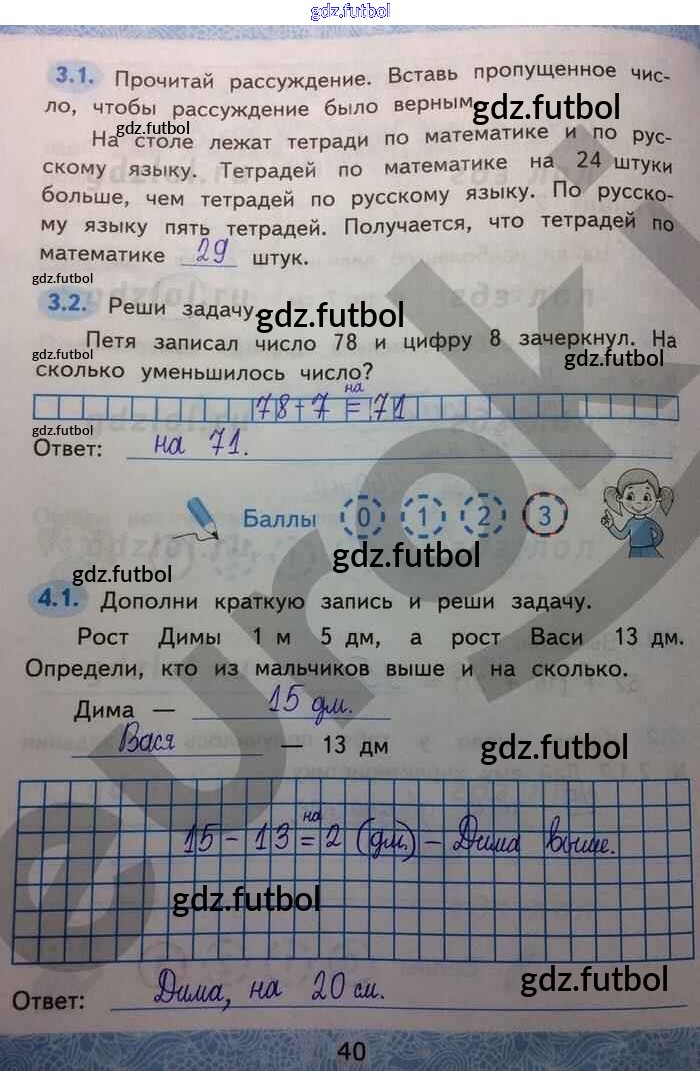 gdz.futbol
3.1. Прочитай рассуждение. Вставь пропущенное чис-
ло, чтобы рассуждение было верным
gdz.futbol
gdz.futbol
На столе лежат тетради по математике и по рус-
скому языку. Тетрадей по математике на 24 штуки
больше, чем тетрадей по русскому языку. По русско-
му языку пять тетрадей. Получается, что тетрадей по
математике 29 штук.
gdz.futbol
3.2. Реши задачу
gdz.futbol
Петя записал число 78 и цифру 8 зачеркнул. На
gdz.futbol
gdz.futbol
сколько уменьшилось число?
78-7 = на 71
gdz.futbol
Ответ: на 71.
Баллы 0 1 2 3
gdz.futbol
gdz.futbol
4.1. Дополни краткую запись и реши задачу.
Рост Димы 1 м 5 дм, а рост Васи 13 дм.
Определи, кто из мальчиков выше и на сколько.
Дима — 15 дм.
Вася — 13 дм
gdz.futbol
15 – 13 = на 2 (дм.) – Дима выше.
gdz.futbol
gdz.futbol
Ответ: Дима, на 20 см.
40
euroki